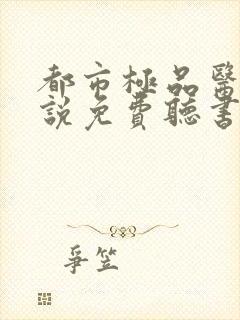 都市極品醫
說免費聽書
爭笠